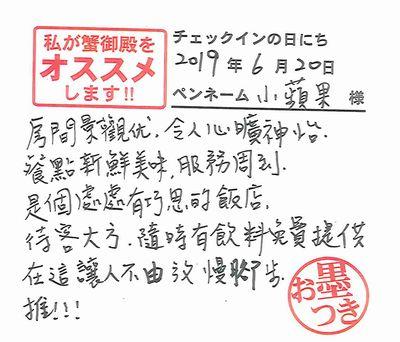 私が蟹御殿を
オススメ
します!!
チェックインの日にち
2019年6月20日
ペンネーム 小蘋果 様
房間景觀优,令人心曠神怡.
餐點新鮮美味,服務周到.
是個處處有巧思的飯店.
待客大方.隨時有飲料免費提供
在這讓人不由放慢腳步
推!!!
お墨つき